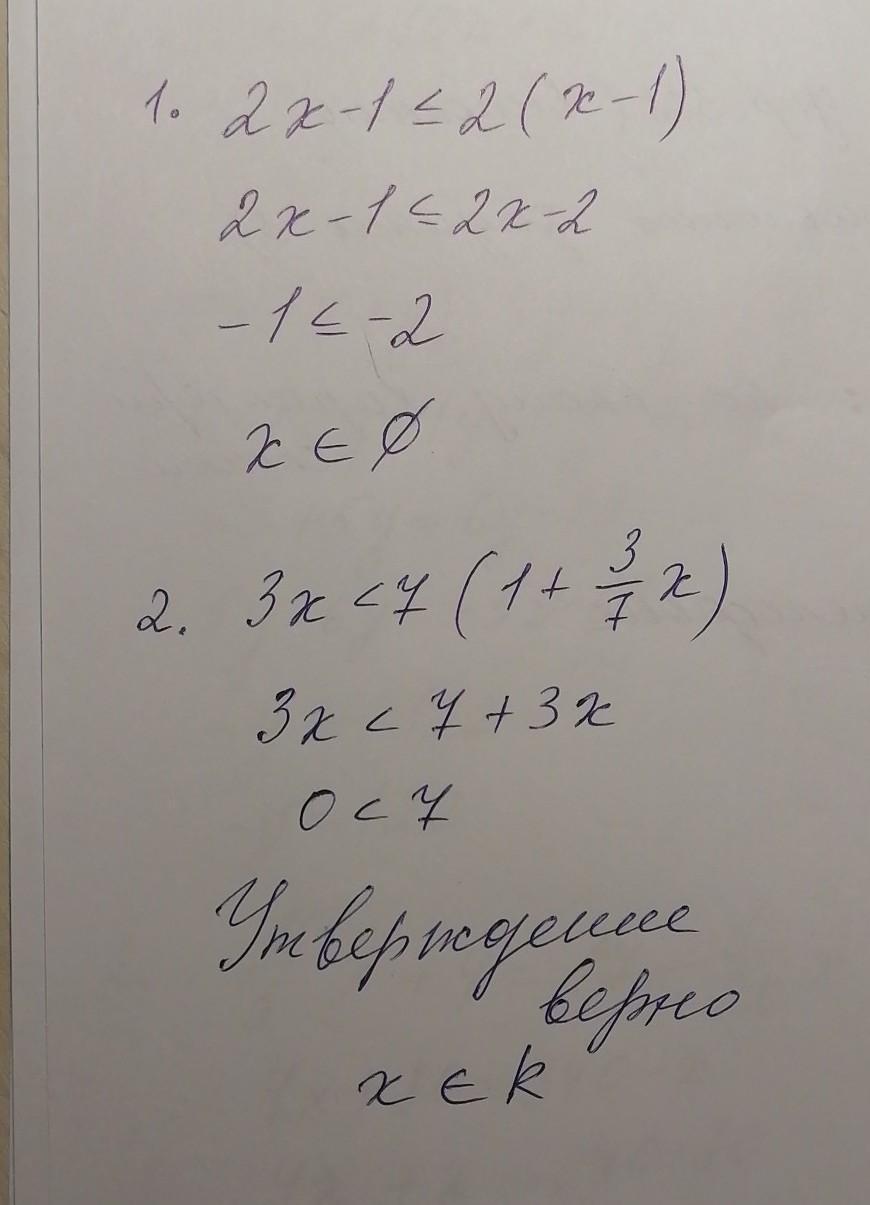 1. 2x-1 ≤ 2(x-1)
2x-1 ≤ 2x-2
-1 ≤ -2
x ∈ ∅
2. 3x < 7(1 + 3/7 x)
3x < 7 + 3x
0 < 7
Утверждение
верно
x ∈ k